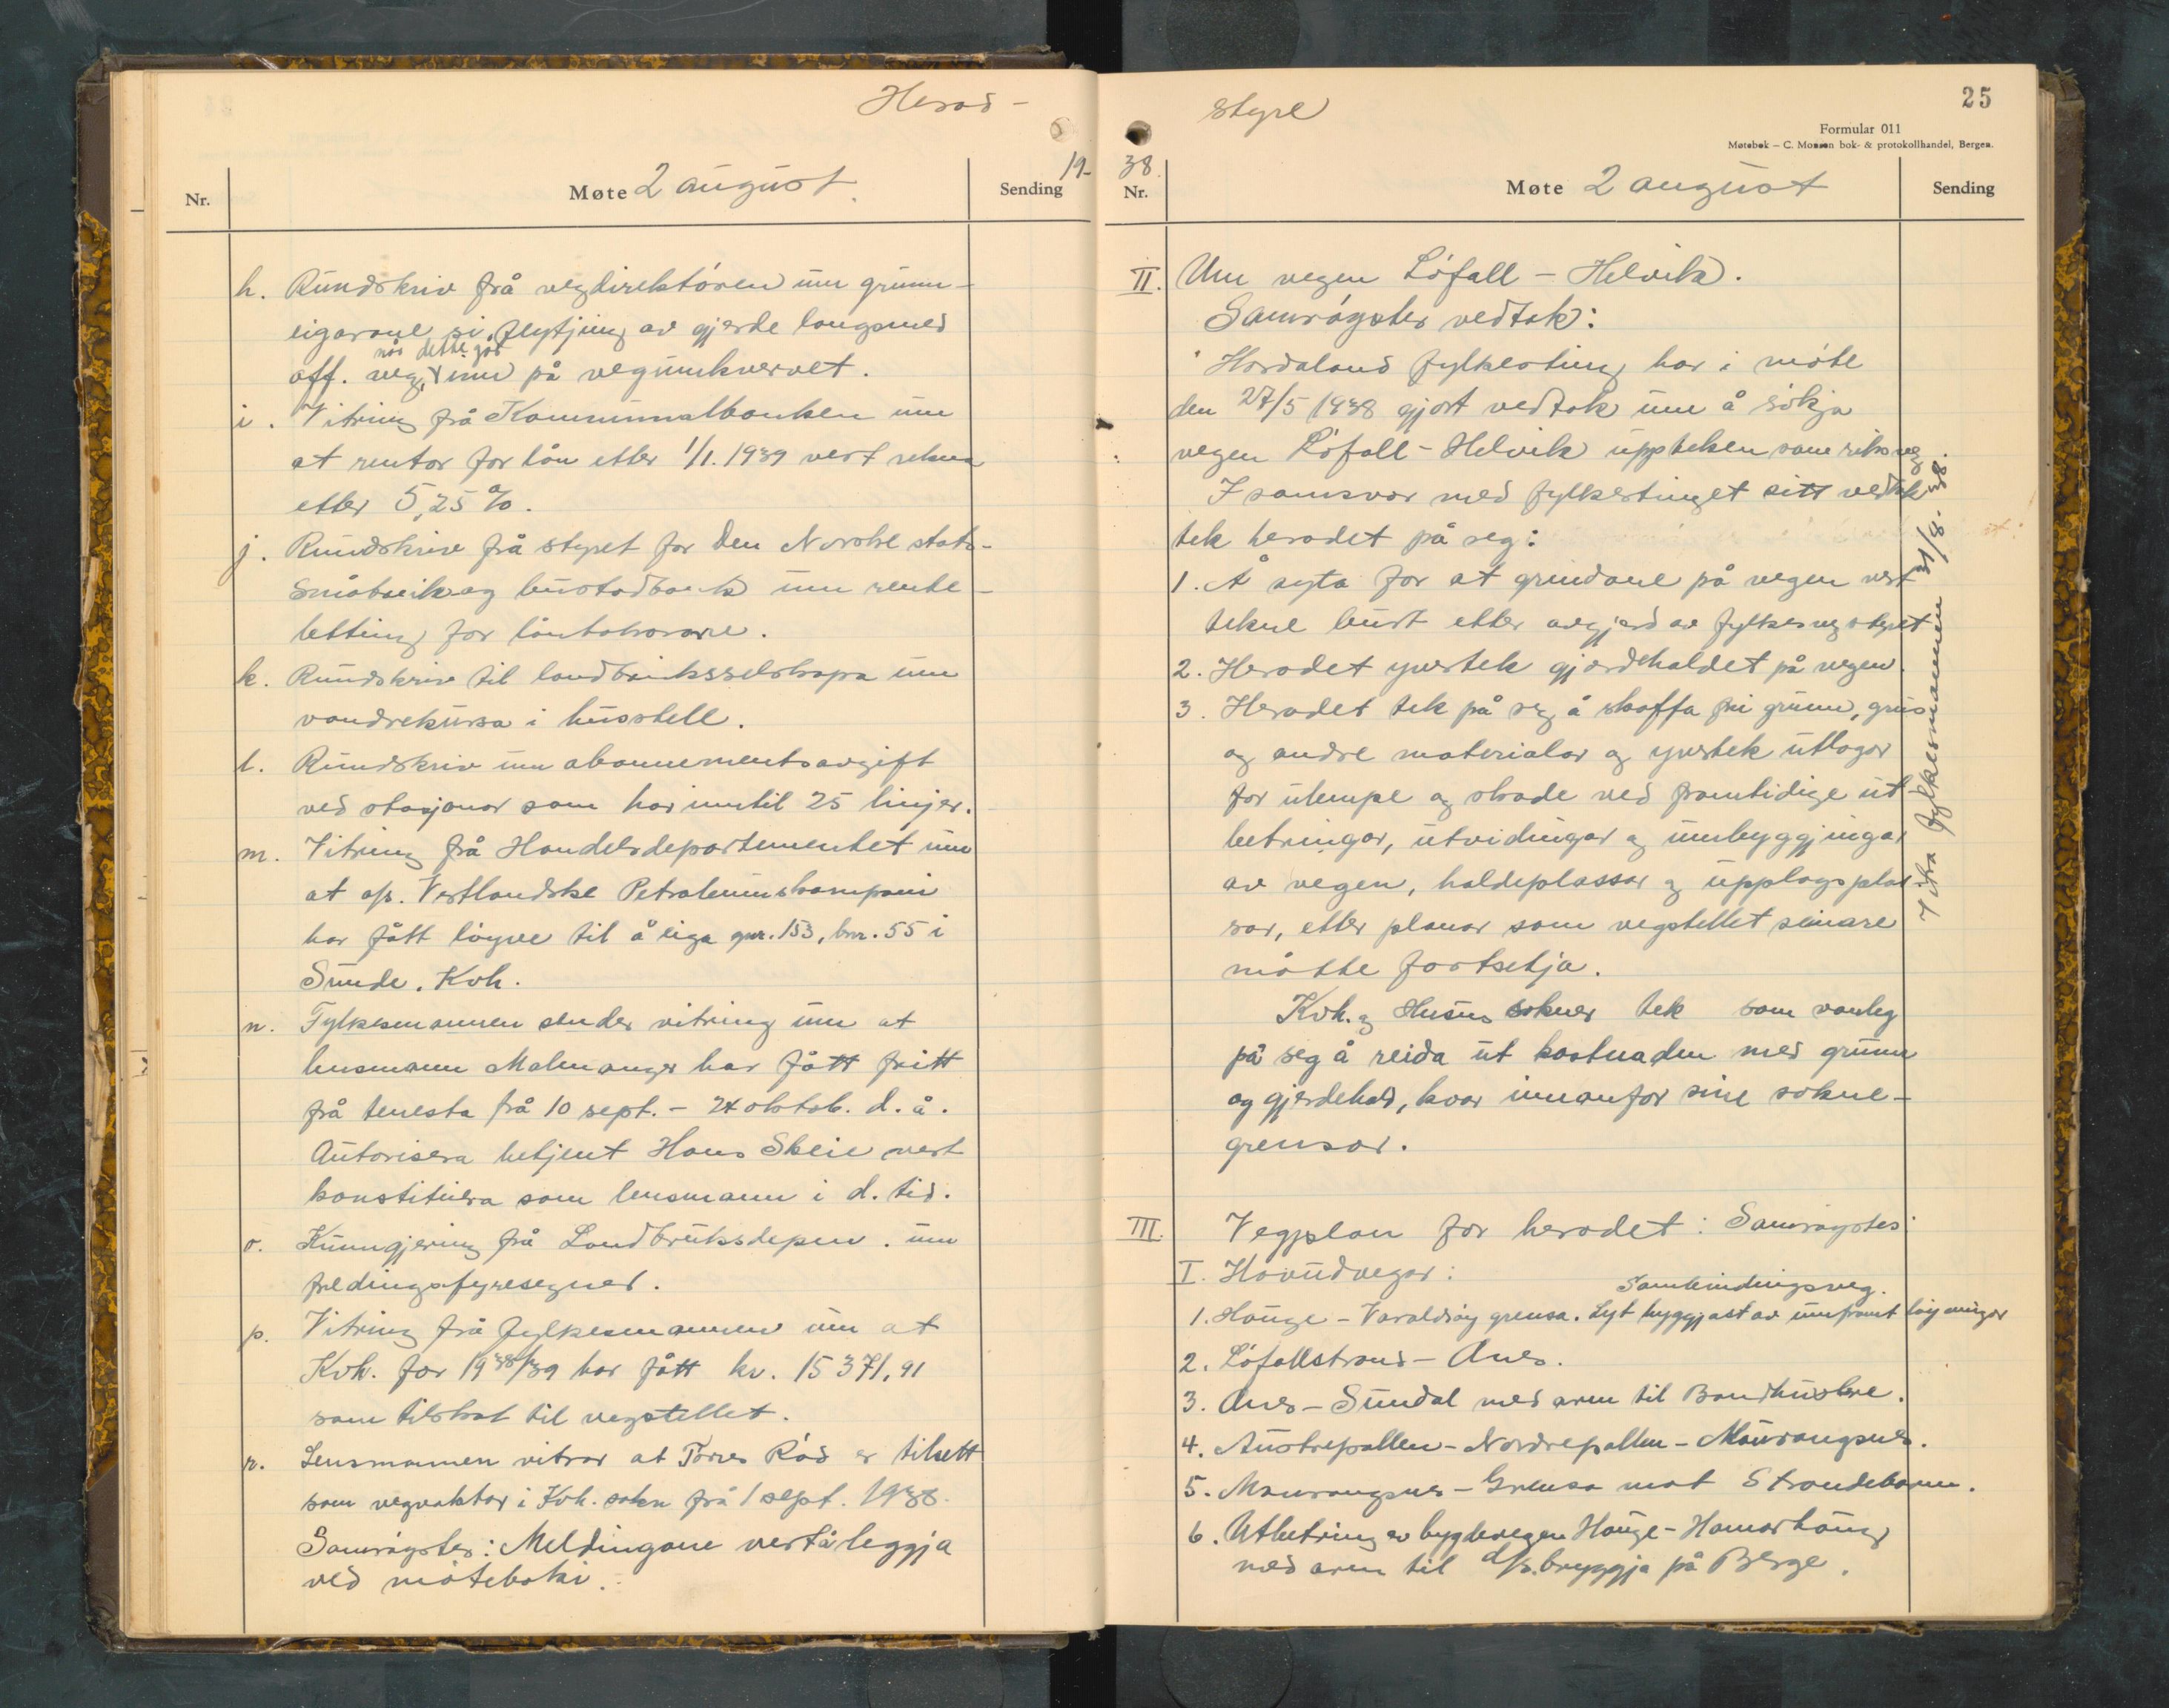 Herad-
19-
Nr.
Møte 2 august.
Sending
h. Rundskriv frå vegdirektóren um grunn-
eigarane si flytjing av gjerde langsmed
når dette går
off. veg, inn på vegumkvervet.
i. Vitring frå Kommunalbanken um
at rentor for lån etter 1/1. 1939 vert rekna
etter 5,25 %.
j. Rundskriv frå styret for Den Norske stats-
småbruk og bustadbank um rente-
letting for låntakarane.
k. Rundskriv til landbruksselskapa um
vandrekursa i husstell.
l. Rundskriv um abonnementsavgift
ved stasjonar som har inntil 25 linjer.
m. Vitring frå Handelsdepartementet um
at a/s. Vestlandske Petroleumskompani
har fått lóyve til å eiga gnr. 153, bnr. 55 i
Sunde, Kvh.
n. Fylkesmannen sender vitring um at
lensmann Malmanger har fått fritt
frå tenesta frå 10 sept. - 24 oktob. d. å.
Autorisera betjent Hans Skeie vert
konstituera som lensmann i d. tid.
o. Kunngjering frå Landbruksdepm. um
fredingsfyresegner.
p. Vitring frå fylkesmannen um at
Kvh. for 1938/39 har fått kr. 15 371,91
som tilskot til vegstellet.
r. Lensmannen vitrar at Torres Ród er tilsett
som vegvaktar i Kvh. sokn frå 1 sept. 1938.
Samróystes: Meldingane vert å leggja
ved móteboki.
styre
25
Formular 011
Møtebok – C. Monsen bok- & protokollhandel, Bergen.
38.
Nr.
Møte 2 august
Sending
II. Um vegen Lófall - Helvik.
Samróystes vedtak:
"Hordaland fylkesting har i móte
den 27/5 1938 gjort vedtak um å sókja
vegen Lófall - Helvik uppteken som riksveg.
I samsvar med fylkestinget sitt vedtak
tek heradet på seg:
1. Å syta for at grindane på vegen vert
tekne burt etter avgjerd av fylkesvegstyret
2. Heradet yvertek gjerdehaldet på vegen.
3. Heradet tek på seg å skaffa fri grunn, grus
og andre materialar og yvertek utlagor
for ulempe og skade ved framtidige ut-
betringar, utvidingar og umbyggjingar
av vegen, haldeplassar og upplagsplas-
sar, etter planar som vegstellet seinare
måtte fastsetja.
Kvh. og Husnes sokner tek som vanleg
på seg å reida ut kostnaden med grunn
og gjerdehald, kvar innanfor sine sokne-
grensor.
7 ifra fylkesmannen 31/8. 38.
III. Vegplan for heradet: Samróystes:
I. Hovudvegar:
Sambindingsveg.
1. Hauge - Varaldsóy grensa. Lyt byggjast av umframt lóyvingar
2. Lófallstrand - Anes.
3. Anes - Sundal med arm til Bondhusbre.
4. Austrepollen - Nordrepollen - Maurangsnes.
5. Maurangsnes - Grensa mot Strandebarm.
6. Utbetring av bygdevegen Hauge - Hamarhaug
med arm til d/s. bryggja på Berge.